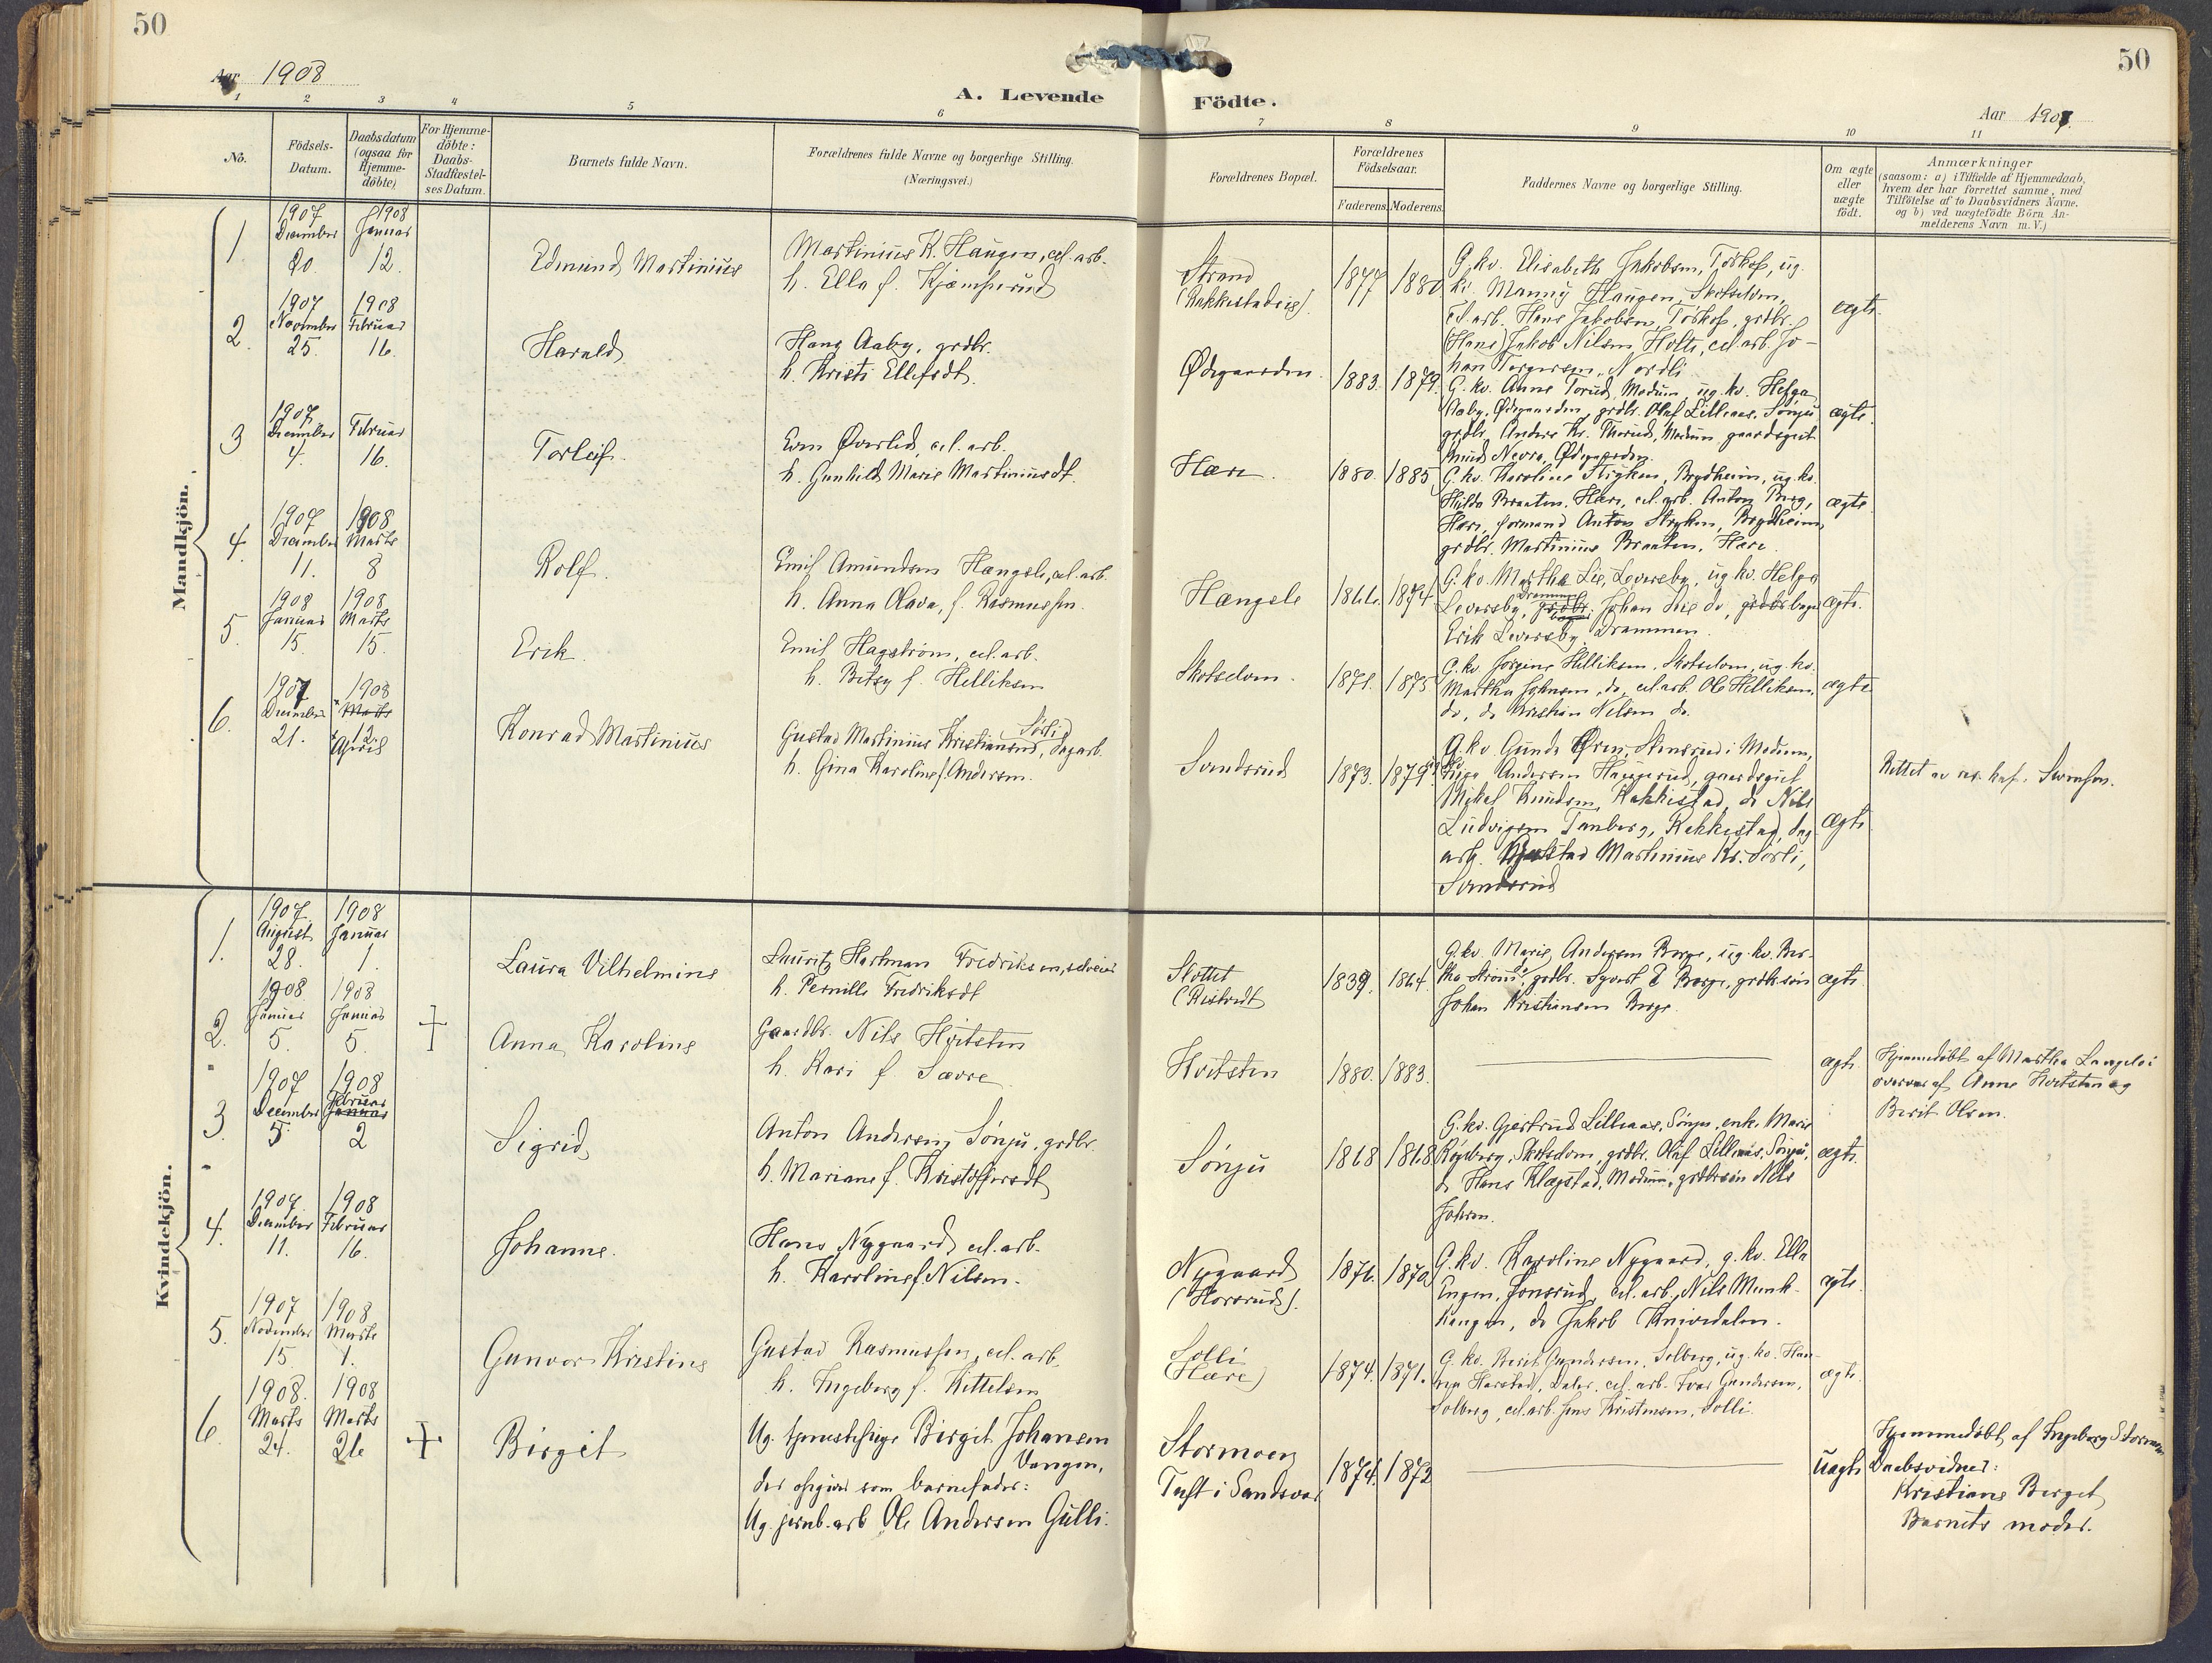 50
50
Aar 1908
A. Levende
Födte.
Aar 1908.
1 2 3 4 5 6 7 8 9 10 11
No.
Födsels-
Datum.
Daabsdatum
(ogsaa for
Hjemme-
döbte)
For Hjemme-
döbte:
Daabs-
Stadfæstel-
ses Datum.
Barnets fulde Navn.
Forældrenes fulde Navne og borgerlige Stilling.
(Næringsvei.)
Forældrenes Bopæl.
Forældrenes
Födselsaar.
Faderens.
Moderens.
Faddernes Navne og borgerlige Stilling.
Om ægte
eller
uægte
födt.
Anmærkninger
(saasom: a) i Tilfælde af Hjemmedaab,
hvem der har forrettet samme, med
Tilföielse af to Daabsvidners Navne.
og b) ved uægtefödte Börn An-
melderens Navn m.V.)
Mandkjön.
1.
1907 December 20.
1908 Januar 12.
Edmund Martinius
Martinius K. Haugen, cel. arb.
h. Ella f. Kjæmperud
Strand
(Rakkestadeie).
1877 1880
G. kv. Elisabeth Jakobsen, Toskop, ug.
kv. Manny Haugen, Skotselven,
cel. arb. Hans Jakobsen, Toskop, grdbr.
(Hans) Jakob Nilsen Holte, cel. arb. Jo-
han Torgersen, Nordli
ægte.
2.
1907 November 25.
1908 Februar 16.
Harald
Hans Aaby, grdbr.
h. Kristi Ellefsdt.
Ødegaarden.
1883. 1879.
G. kv. Anne Torud, Modum, ug. kv. Helga
Aaby, Ødegaarden, grdbr. Olaf Lilleaas, Sønju
grdbr. Anders Kr. Thorud, Modum, gaardsgut
Knud Nevra, Ødegaarden.
ægte
3
1907 December 4.
Februar 16.
Torleif.
Even Øverlid, cel. arb.
h. Gunhild Marie Martiniusdt.
Hære.
1880. 1885
G. kv. Karoline Stryken, Brydheim, ug. kv.
Hilda Braaten, Hære, cel. arb. Anton Berg,
Hære, formand Anton Stryken, Brydheim,
grdbr. Martinius Braaten, Hære.
ægte
4.
1907 December 11.
1908 Marts 8
Rolf.
Emil Amundsen Hængsle, cel. arb.
h. Anna Olava, f. Rasmussen.
Hængsle
1866. 1874
G. kv. Martha Lie, Leversby, ug. kv. Helga
Leversby, Drammen, Johan Lie do,
Erik Leversby, Drammen.
ægte.
5.
1908 Januar 15.
1908 Marts 15.
Erik
Emil Hagstrøm, cel. arb.
h. Betsy f. Helliksen
Skotselven.
1871. 1875
G. kv. Jorgine Helliksen, Skotselven, ug. kv.
Martha Johnsen, do, cel. arb. Ole Helliksen,
do, do Kristian Nilsen do.
ægte
6.
1907 December 21.
1908 Marts 12. April
Konrad Martinius
Gustav Martinius Kristiansen Sørli, dagarb.
h. Gina Karoline f. Andersen.
Sandsrud
1873. 1879.
G. kv. Gunda Øren, Stensrud i Modum,
Andersen Haugerud, gaardsgut
Mikal Knudsen, Rakkestad, do Nils
Ludvigsen Tanberg, Rakkestad, dag
arb. Gustav Martinius Kr. Sørli,
Sandsrud
ægte
Rettet av res. kap. Svensen.
Kvindekjön.
1.
1907 August 28.
1908 Januar 1.
Laura Vilhelmine
Lauritz Hartman Fredriksen, selveier
h. Pernille Fredriksdt
Slottet
1839. 1864.
G. kv. Marie Andersen Borge, ug. kv. Ber-
tha Strøm, grdbr. Syvert E Borge, grdbrsøn
Johan Kristiansen Borge.
ægte
2.
1908 Januar 5.
1908 Januar 5.
Anna Karoline
Gaardbr. Nils Hvitsten
h. Kari f. Sævre
Hvitsten
1880. 1883.
ægte
Hjemmedöbt af Martha Langelo i
overvær af Anne Hvitsten og
Berit Olsen.
3
1907 December 5.
1908 Februar Januar 2
Sigrid
Anton Andersen Sönju, grdbr.
h. Mariane f. Kristoffersdt
Sönju
1868 1868
G. kv. Gjertrud Lilleaas, Sönju, enke Marie
Røgeberg, Skotselven, grdbr. Olaf Lilleaas, Sönju,
do Hans Klægstad, Modum, grdbrsøn Nils
Johsen.
ægte.
4.
1907 December 11.
1908 Februar 16.
Johanne.
Hans Nygaard, cel. arb.
h. Karoline f Nilsen.
Nygaard
(Horsrud).
1876. 1870
G. kv. Karoline Nygaard, g. kv. Ella
Engen, Jonsrud, cel. arb. Nils Munk-
haugen, do Jakob Knivedalen.
ægte
5.
1907 November 15.
1908 Marts 1.
Gunvor Kristine
Gustav Rasmussen, cel. arb.
h. Ingeborg f. Kittelsen
Solli
(Hære)
1874. 1871.
G. kv. Berit Gundersen, Solberg, ug. kv. Han-
na Harstad, Daler, cel. arb. Ivar Gundersen,
Solberg, cel. arb. Jens Kristensen, Solli.
ægte.
6.
1908. Marts 24.
1908 Marts 26
Birgit
Ug. tjenestepige Birgit Johansen
Vangen,
der opgiver som barnefader:
Ug. jernb. arb Ole Andersen Gulli.
Stormoen
Tuft i Sandsvær
1874. 1872
Uægte
Hjemmedöbt af Ingeborg Stormoen
Daabsvidner:
Kristiane Berget
Barnets moder.